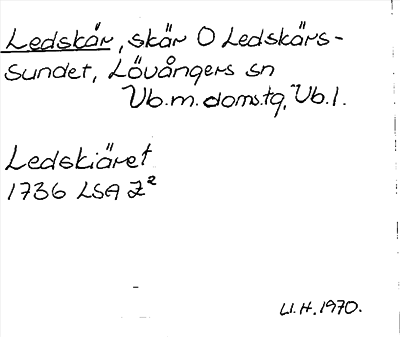 Ledskär, skär O Ledskärs-
sundet, Lövångers sn
Vb.m. doms.tg, Vb.l.
Ledskiäret
1736 LSA Z²
U.H. 1970.